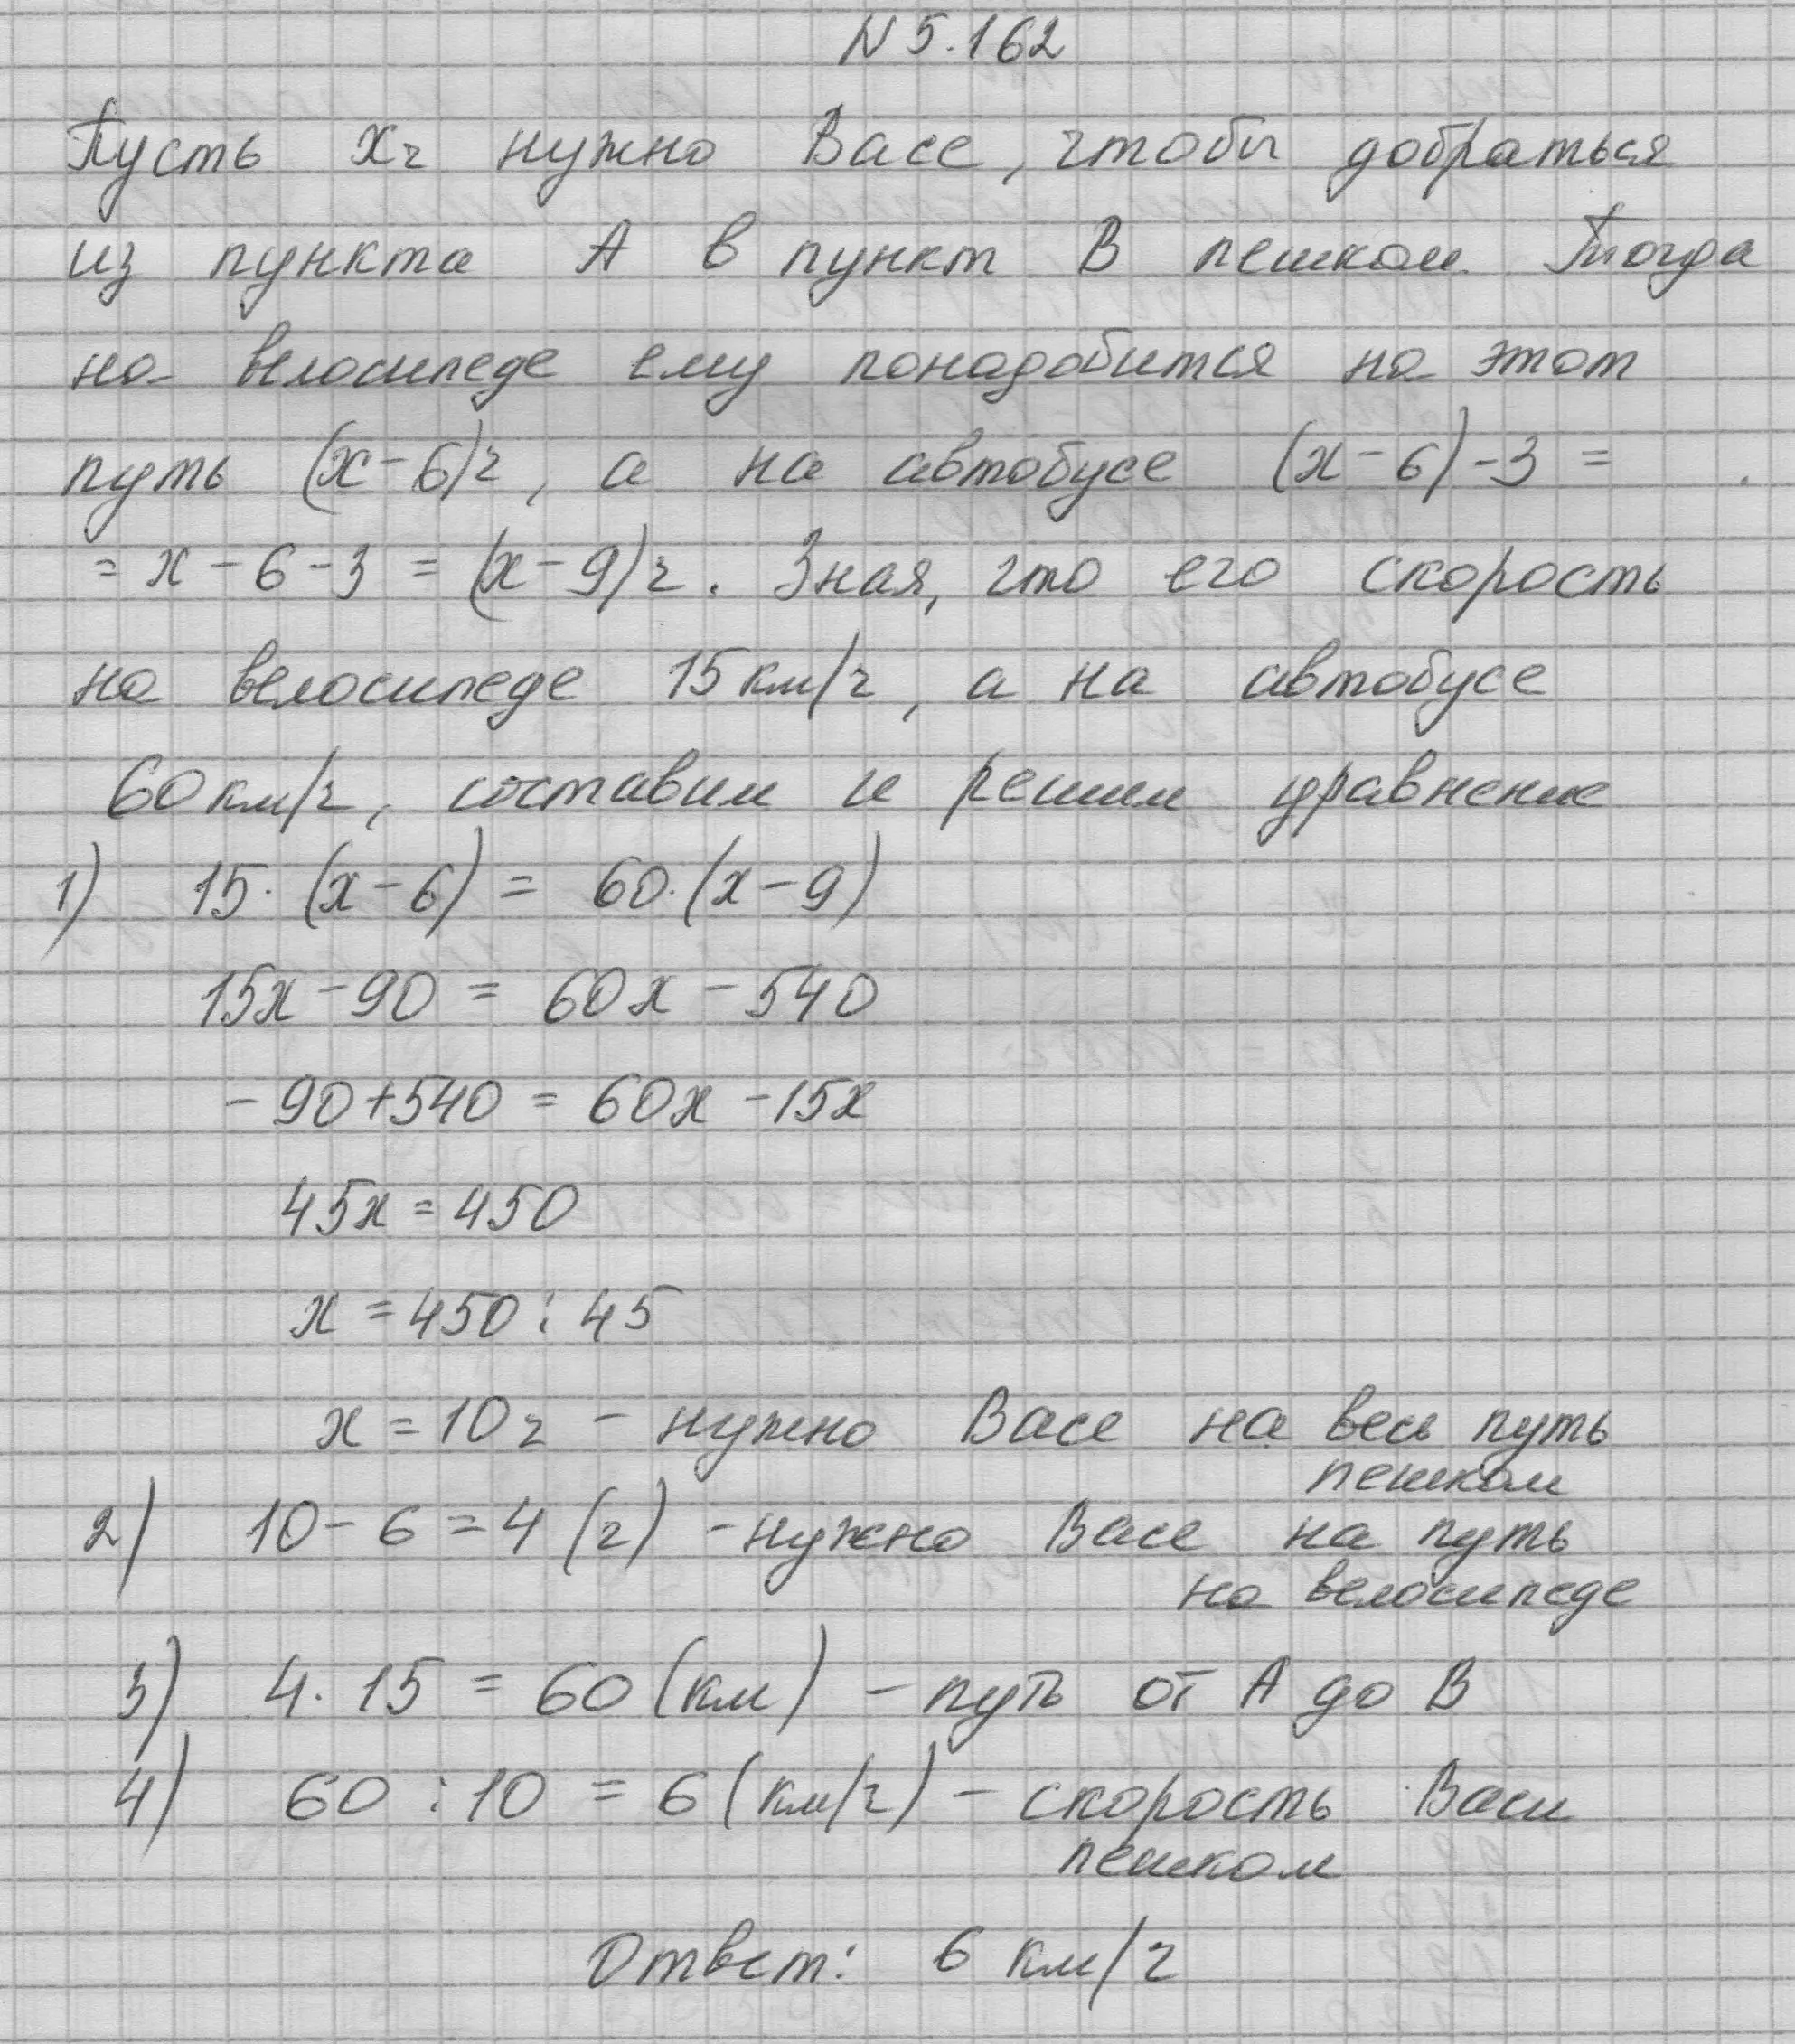 N 5.162
Пусть хч нужно Васе, чтобы добраться
из пункта А в пункт В пешком. Тогда
на велосипеде ему понадобится на этот
путь (х-6)ч, а на автобусе (х-6)-3 =
= х-6-3 = (х-9)ч. Зная, что его скорость
на велосипеде 15 км/ч, а на автобусе
60 км/ч, составим и решим уравнение
1) 15·(х-6) = 60·(х-9)
15х-90 = 60х-540
-90+540 = 60х-15х
45х=450
х=450:45
х=10ч - нужно Васе на весь путь
пешком
2) 10-6=4 (ч) - нужно Васе на путь
на велосипеде
3) 4·15 = 60 (км) - путь от А до В
4) 60:10 = 6 (км/ч) - скорость Васи
пешком
Ответ: 6 км/ч